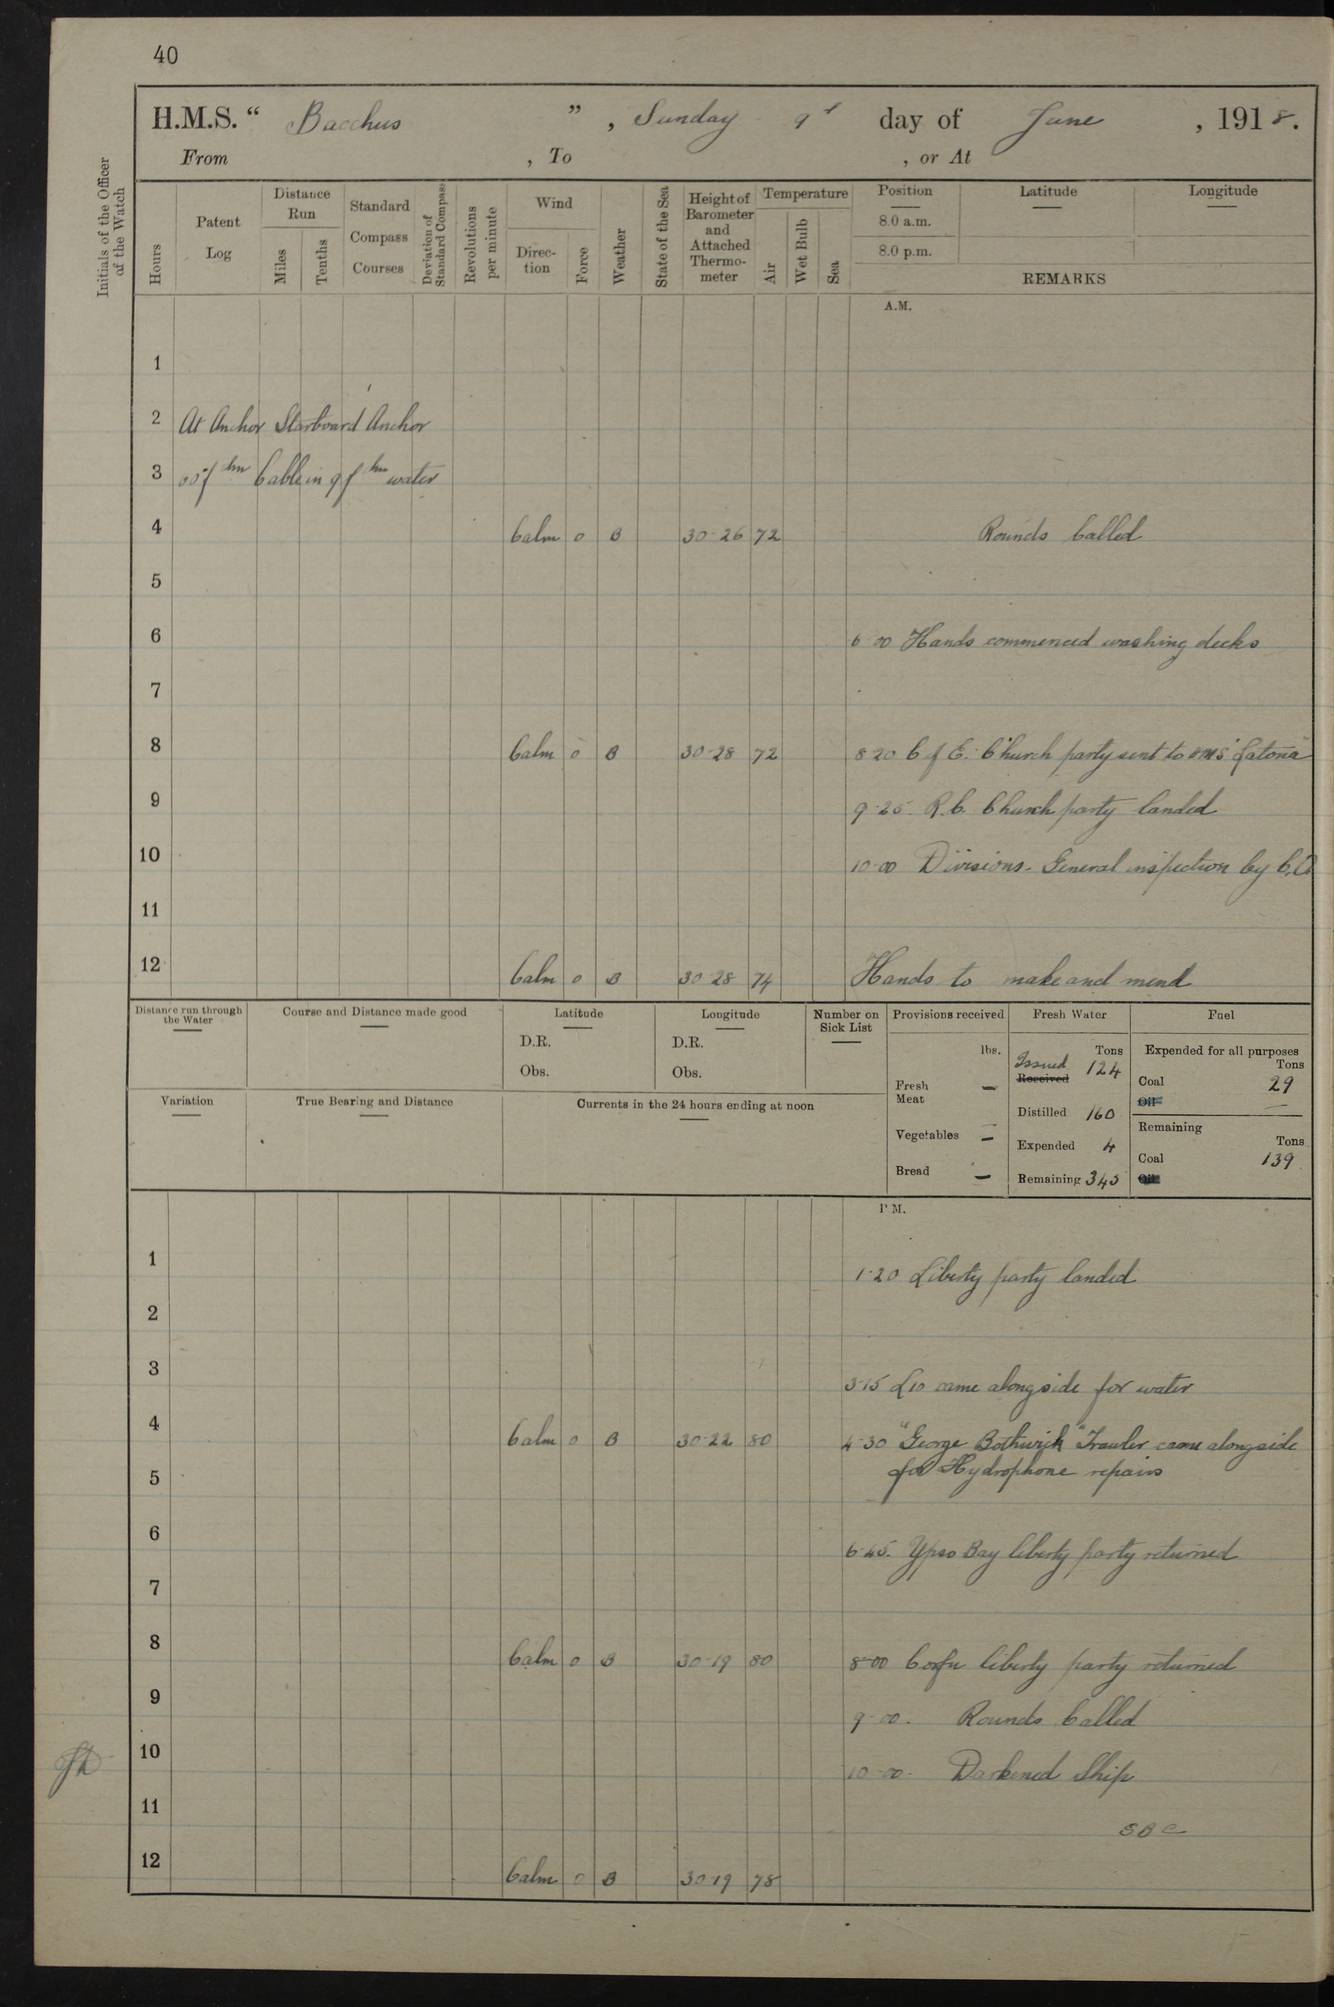 40
H.M.S. “ Bacchus ” , Sunday 9th day of June , 1918.
From , To , or At
Initials of the Officer of the Watch
Hours
Patent Log
Distance Run
Miles
Tenths
Standard Compass Courses
Deviation of Standard Compass
Revolutions per minute
Wind
Direc-tion
Force
Weather
State of the Sea
Height of Barometer and Attached Thermo-meter
Temperature
Air
Wet Bulb
Sea
Position
8.0 a.m.
8.0 p.m.
Latitude
Longitude
REMARKS
A.M.
1
2 At Anchor Starboard Anchor
3 fhm Cable in 9 fhm water
4 Calm 0 B 30·26 72 Rounds Called
5
6 6·00 Hands commenced washing decks
7
8 Calm 0 B 30·28 72 8·20 C of E. Church party sent to HMS "Latona"
9 9·25. R.C. Church party landed
10 10·00 Divisions. General inspection by C.O
11
12 Calm 0 B 30·28 74 Hands to make and mend
Distance run through the Water
Course and Distance made good
Latitude
D.R.
Obs.
Longitude
D.R.
Obs.
Number on Sick List
Provisions received
lbs.
Fresh Meat —
Vegetables —
Bread —
Fresh Water
Tons
Issued Received 124
Distilled 160
Expended 4
Remaining 345
Fuel
Expended for all purposes
Tons
Coal 29
Oil —
Remaining
Tons
Coal 139
Oil
Variation
True Bearing and Distance
Currents in the 24 hours ending at noon
P.M.
1 1·20 Liberty party landed
2
3 3·15 L10 came alongside for water
4 Calm 0 B 30·22 80 4·30 "George Bothwick" Trawler came alongside
5 for Hydrophone repairs
6 6·45. Ypso Bay liberty party returned
7
8 Calm 0 B 30·19 80 8·00 Corfu liberty party returned
9 9·00. Rounds Called
10 10·00. Darkened Ship
11 SBC
12 Calm 0 B 30·19 78